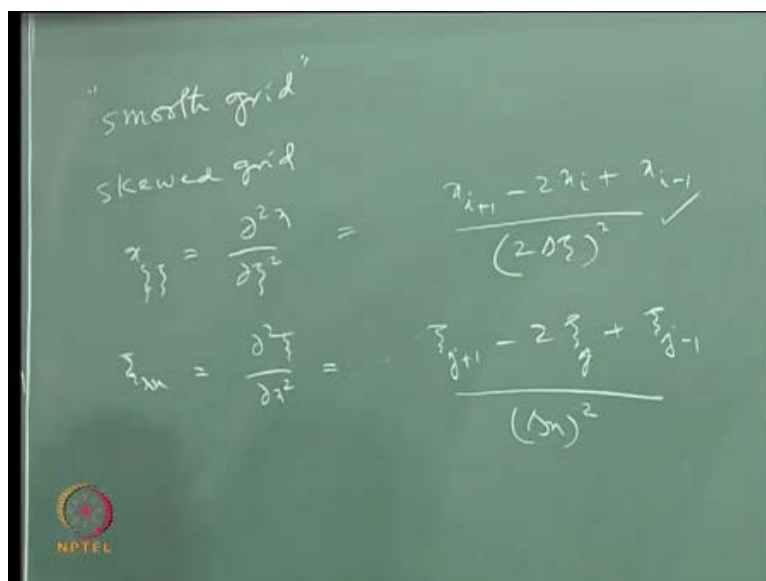 "smooth grid"
skewed grid
x_{ξξ} = ∂²x/∂ξ² = (x_{i+1} - 2x_i + x_{i-1})/(2Δξ)² ✓
ξ_{xx} = ∂²ξ/∂x² = (ξ_{j+1} - 2ξ_j + ξ_{j-1})/(Δx)²
NPTEL